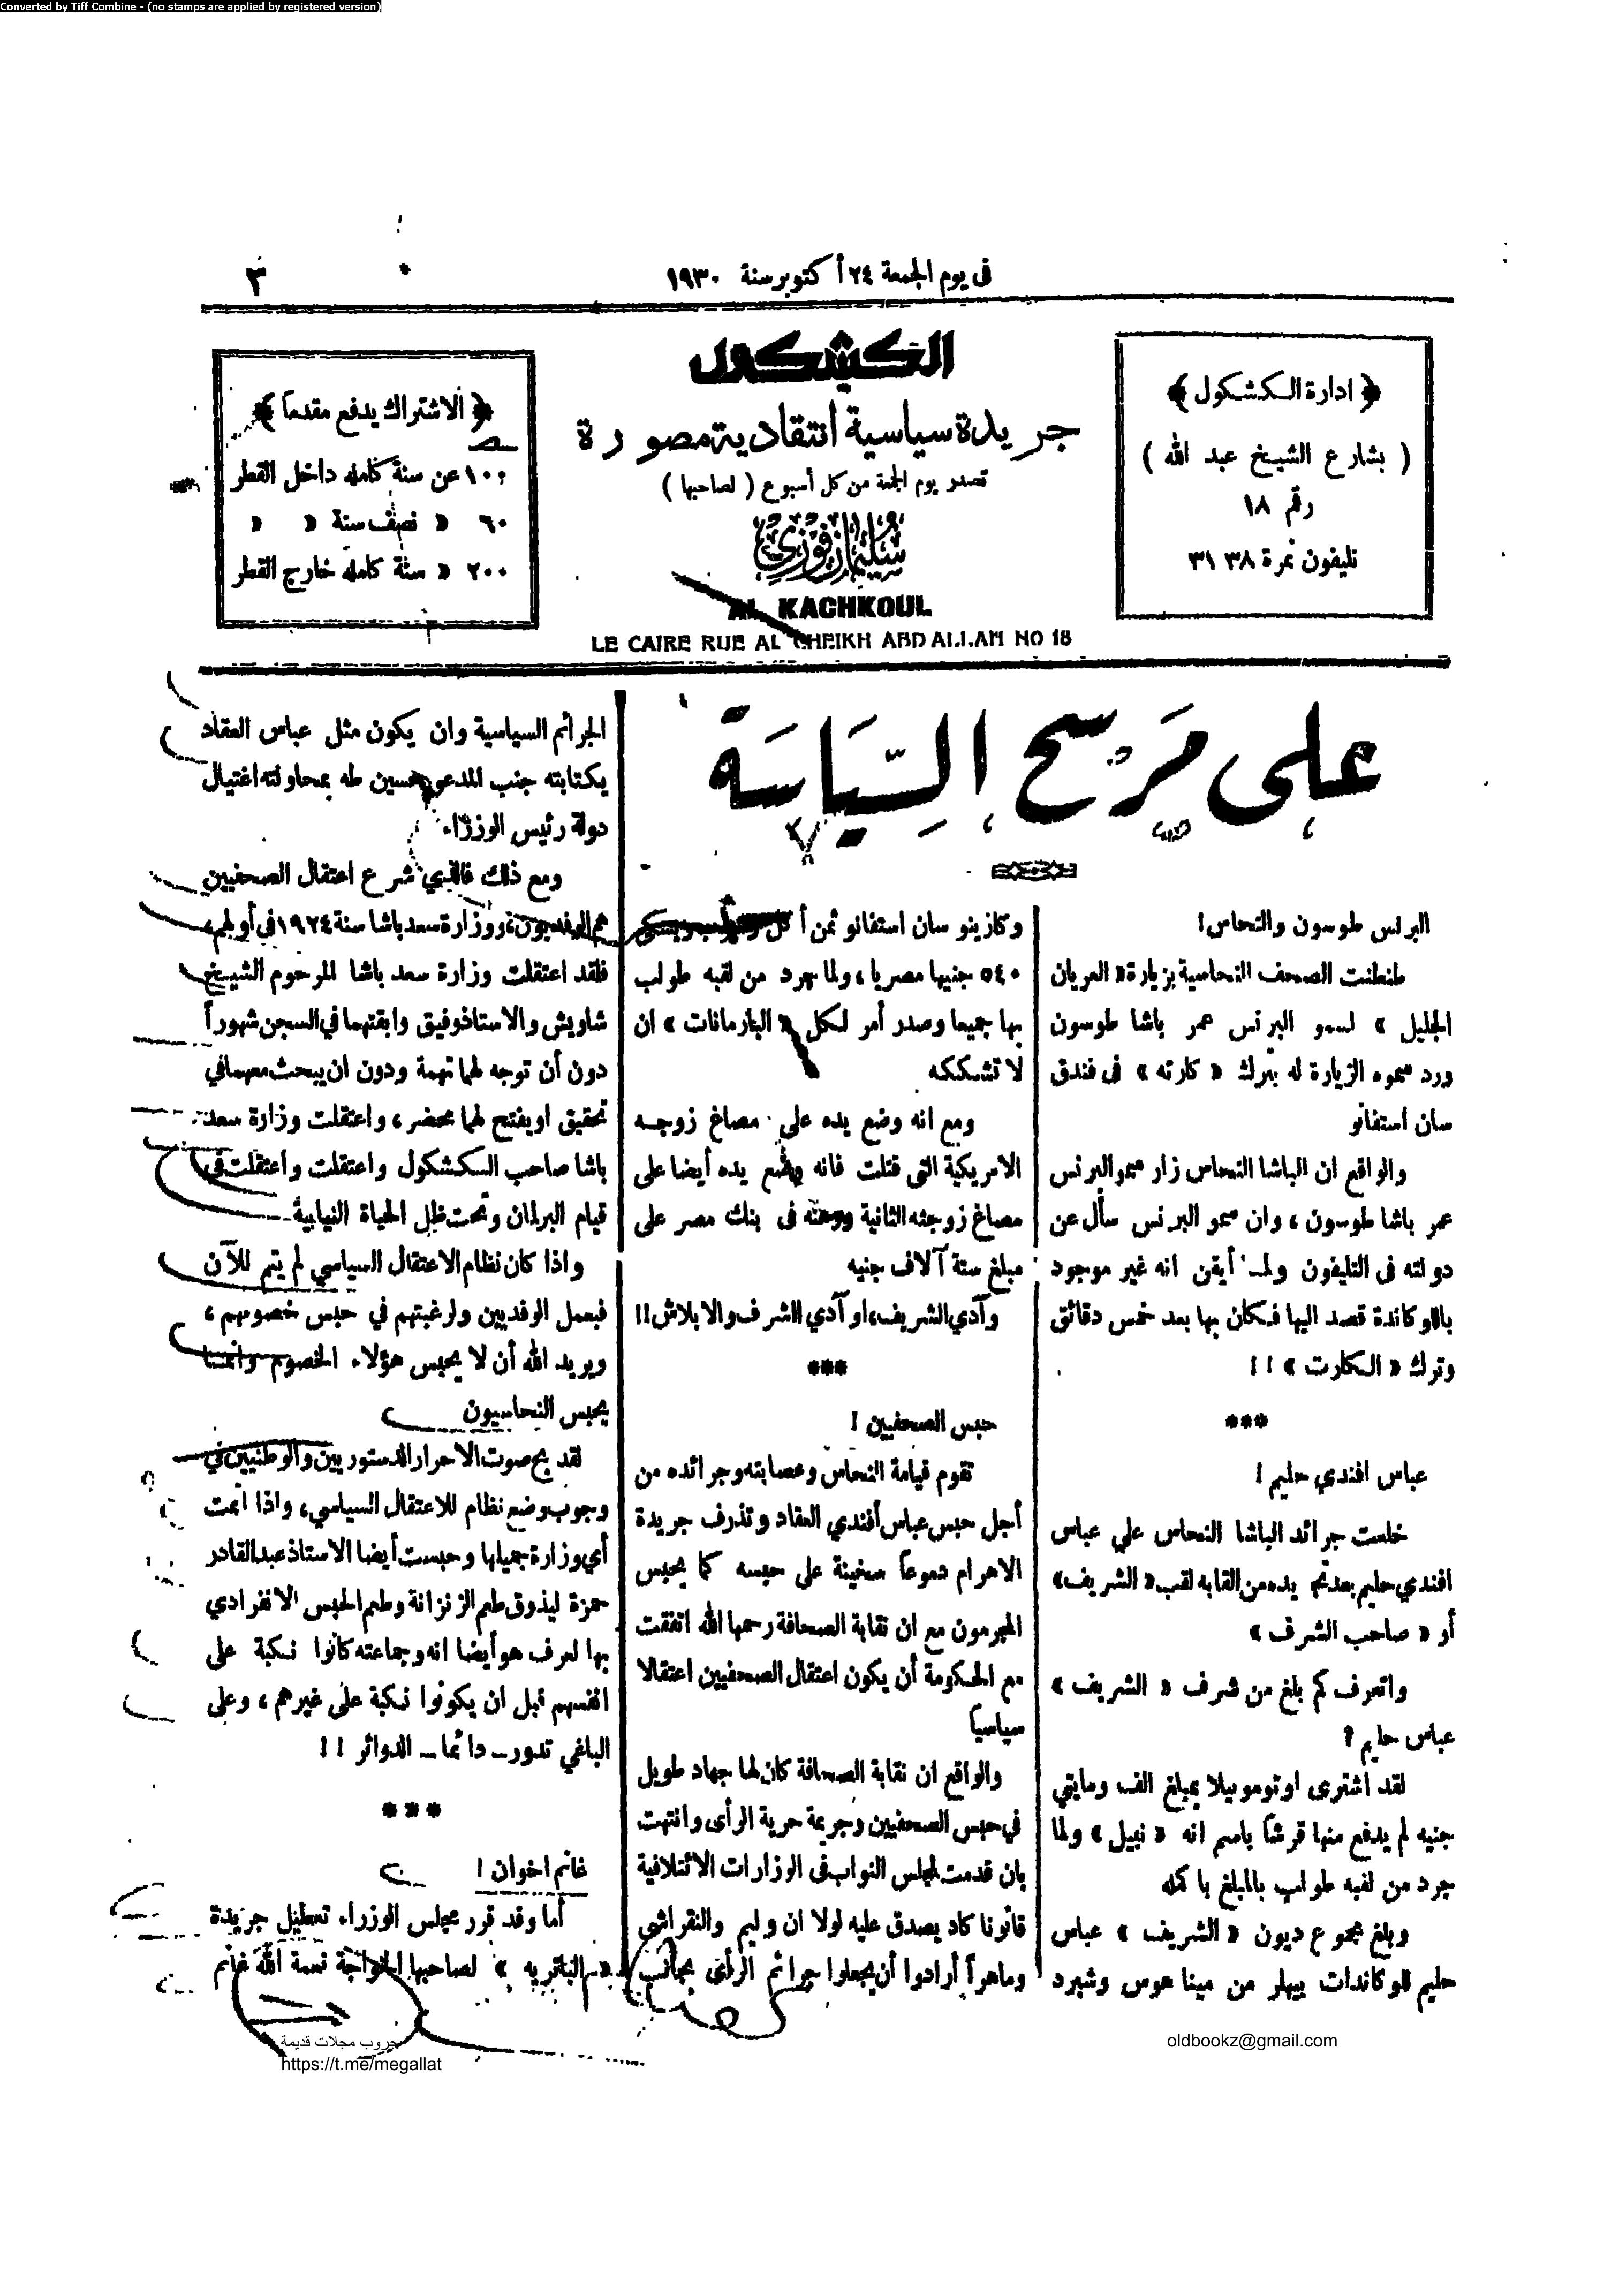 Converted by Tiff Combine - (no stamps are applied by registered version)
فى يوم الجمعة ٢٤ أكتوبر سنة ١٩٣٠
٣
﴿ ادارة الكشكول ﴾
( بشارع الشيخ عبد الله )
رقم ١٨
تليفون نمرة ٣٨ ٣١
الكشكول
جريدة سياسية انتقادية مصورة
تصدر يوم الجمعة من كل أسبوع ( لصاحبها )
سليمان فوزي
AL KACHKOUL
LE CAIRE RUE AL CHEIKH ABD ALLAH NO 18
﴿ الاشتراك يدفع مقدما ﴾
١٠٠ عن سنة كامله داخل القطر
٦٠ « نصف سنة « «
٢٠٠ « سنة كامله خارج القطر
على مرسح السياسة
البرنس طوسون والنحاس !
طنطنت الصحف النحاسية بزيارة « العريان
الجليل » لسمو البرنس عمر باشا طوسون
ورد سموه الزيارة له بترك « كارته » فى فندق
سان استفانو
والواقع ان الباشا النحاس زار سمو البرنس
عمر باشا طوسون ، وان سمو البرنس سأل عن
دولته فى التليفون ولما أيقن انه غير موجود
باللوكاندة قصد اليها فكان بها بعد خمس دقائق
وترك « الكارت » ! !
***
عباس افندي حليم !
خلعت جرائد الباشا النحاس علي عباس
افندي حليم بعد يده من القابه لقب « الشريف »
أو « صاحب الشرف »
واتعرف كم بلغ من شرف « الشريف »
عباس حليم ؟
لقد اشترى اوتوموبيلا بمبلغ الف ومايتي
جنيه لم يدفع منها قرشا باسم انه « نبيل » ولما
جرد من لقبه طولب بالمبلغ باكمله
وبلغ مجموع ديون « الشريف » عباس
حليم للوكاندات بيهلر من مينا هوس وشبرد
وكازينو سان استفانو ثمن أكل
٥٤٠ جنيها مصريا ، ولما جرد من لقبه طولب
بها جميعا وصدر أمر لكل « البارمانات » ان
لا تشككه
ومع انه وضع يده على مصاغ زوجه
الامريكية التي قتلت فانه وضع يده أيضا على
مصاغ زوجته الثانية ورهنه فى بنك مصر على
مبلغ ستة آلاف جنيه
وآدي الشريف ، او آدي الشرف والا بلاش ! !
***
حبس الصحفيين !
تقوم قيامة النحاس وعصابته وجرائده من
أجل حبس عباس أفندي العقاد وتذرف جريدة
الاهرام دموعا سخينة على حبسه كما يحبس
المجرمون مع ان نقابة الصحافة رحمها الله اتفقت
مع الحكومة أن يكون اعتقال الصحفيين اعتقالا
سياسيا
والواقع ان نقابة الصحافة كان لها جهاد طويل
في حبس الصحفيين وجريمة حرية الرأى وانتهت
بان قدمت لمجلس النواب فى الوزارات الائتلافية
قانونا كاد يصدق عليه لولا ان وليم والنقراشي
وماهرا أرادوا أن يجعلوا جرائم الرأى بجانب
الجرائم السياسية وان يكون مثل عباس العقاد
بكتابته جنب المدعو حسين طه بمحاولته اغتيال
دولة رئيس الوزراء
ومع ذلك فالذي شرع اعتقال الصحفيين
هم الوفديون ، ووزارة سعد باشا سنة ١٩٢٤ في أولهم ،
فلقد اعتقلت وزارة سعد باشا المرحوم الشيخ
شاويش والاستاذ وفيق وابقتهما في السجن شهوراً
دون أن توجه لهما تهمة ودون ان يبحث معهما في
تحقيق او يفتح لهما محضر ، واعتقلت وزارة سعد
باشا صاحب الكشكول واعتقلت واعتقلت فى
قيام البرلمان وتحت ظل الحياة النيابية
واذا كان نظام الاعتقال السياسي لم يتم للآن
فبعمل الوفديين ولرغبتهم في حبس خصومهم ،
ويريد الله أن لا يحبس هؤلاء الخصوم وانما
يحبس النحاسيون
لقد بح صوت الاحرار الدستوريين والوطنيين في
وجوب وضع نظام للاعتقال السياسي ، واذا أتمت
أي وزارة جميلها وحبست أيضا الاستاذ عبد القادر
حمزة ليذوق طعم الزنزانة وطعم الحبس الانفرادي
بها لعرف هو أيضا انه وجماعته كانوا نكبة على
انفسهم قبل ان يكونوا نكبة على غيرهم ، وعلى
الباغي تدور ـ دائما ـ الدوائر ! !
***
غانم اخوان !
أما وقد قرر مجلس الوزراء تعطيل جريدة
« الباتريه » لصاحبها الخواجة نعمة الله غانم
جروب مجلات قديمة
https://t.me/megallat
oldbookz@gmail.com